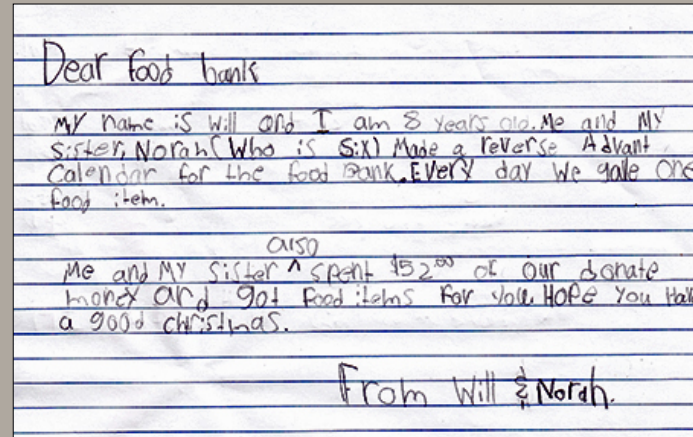 Dear food bank
My name is Will and I am 8 years old. Me and My
Sister, Norah (Who is Six) Made a reverse Advant
Calendar for the food Bank. Every day We gave one
food item.
also
Me and My Sister ^ spent $52.00 of our donate
money and got food items for you. HOPE You Have
a good christmas.
From Will & Norah.